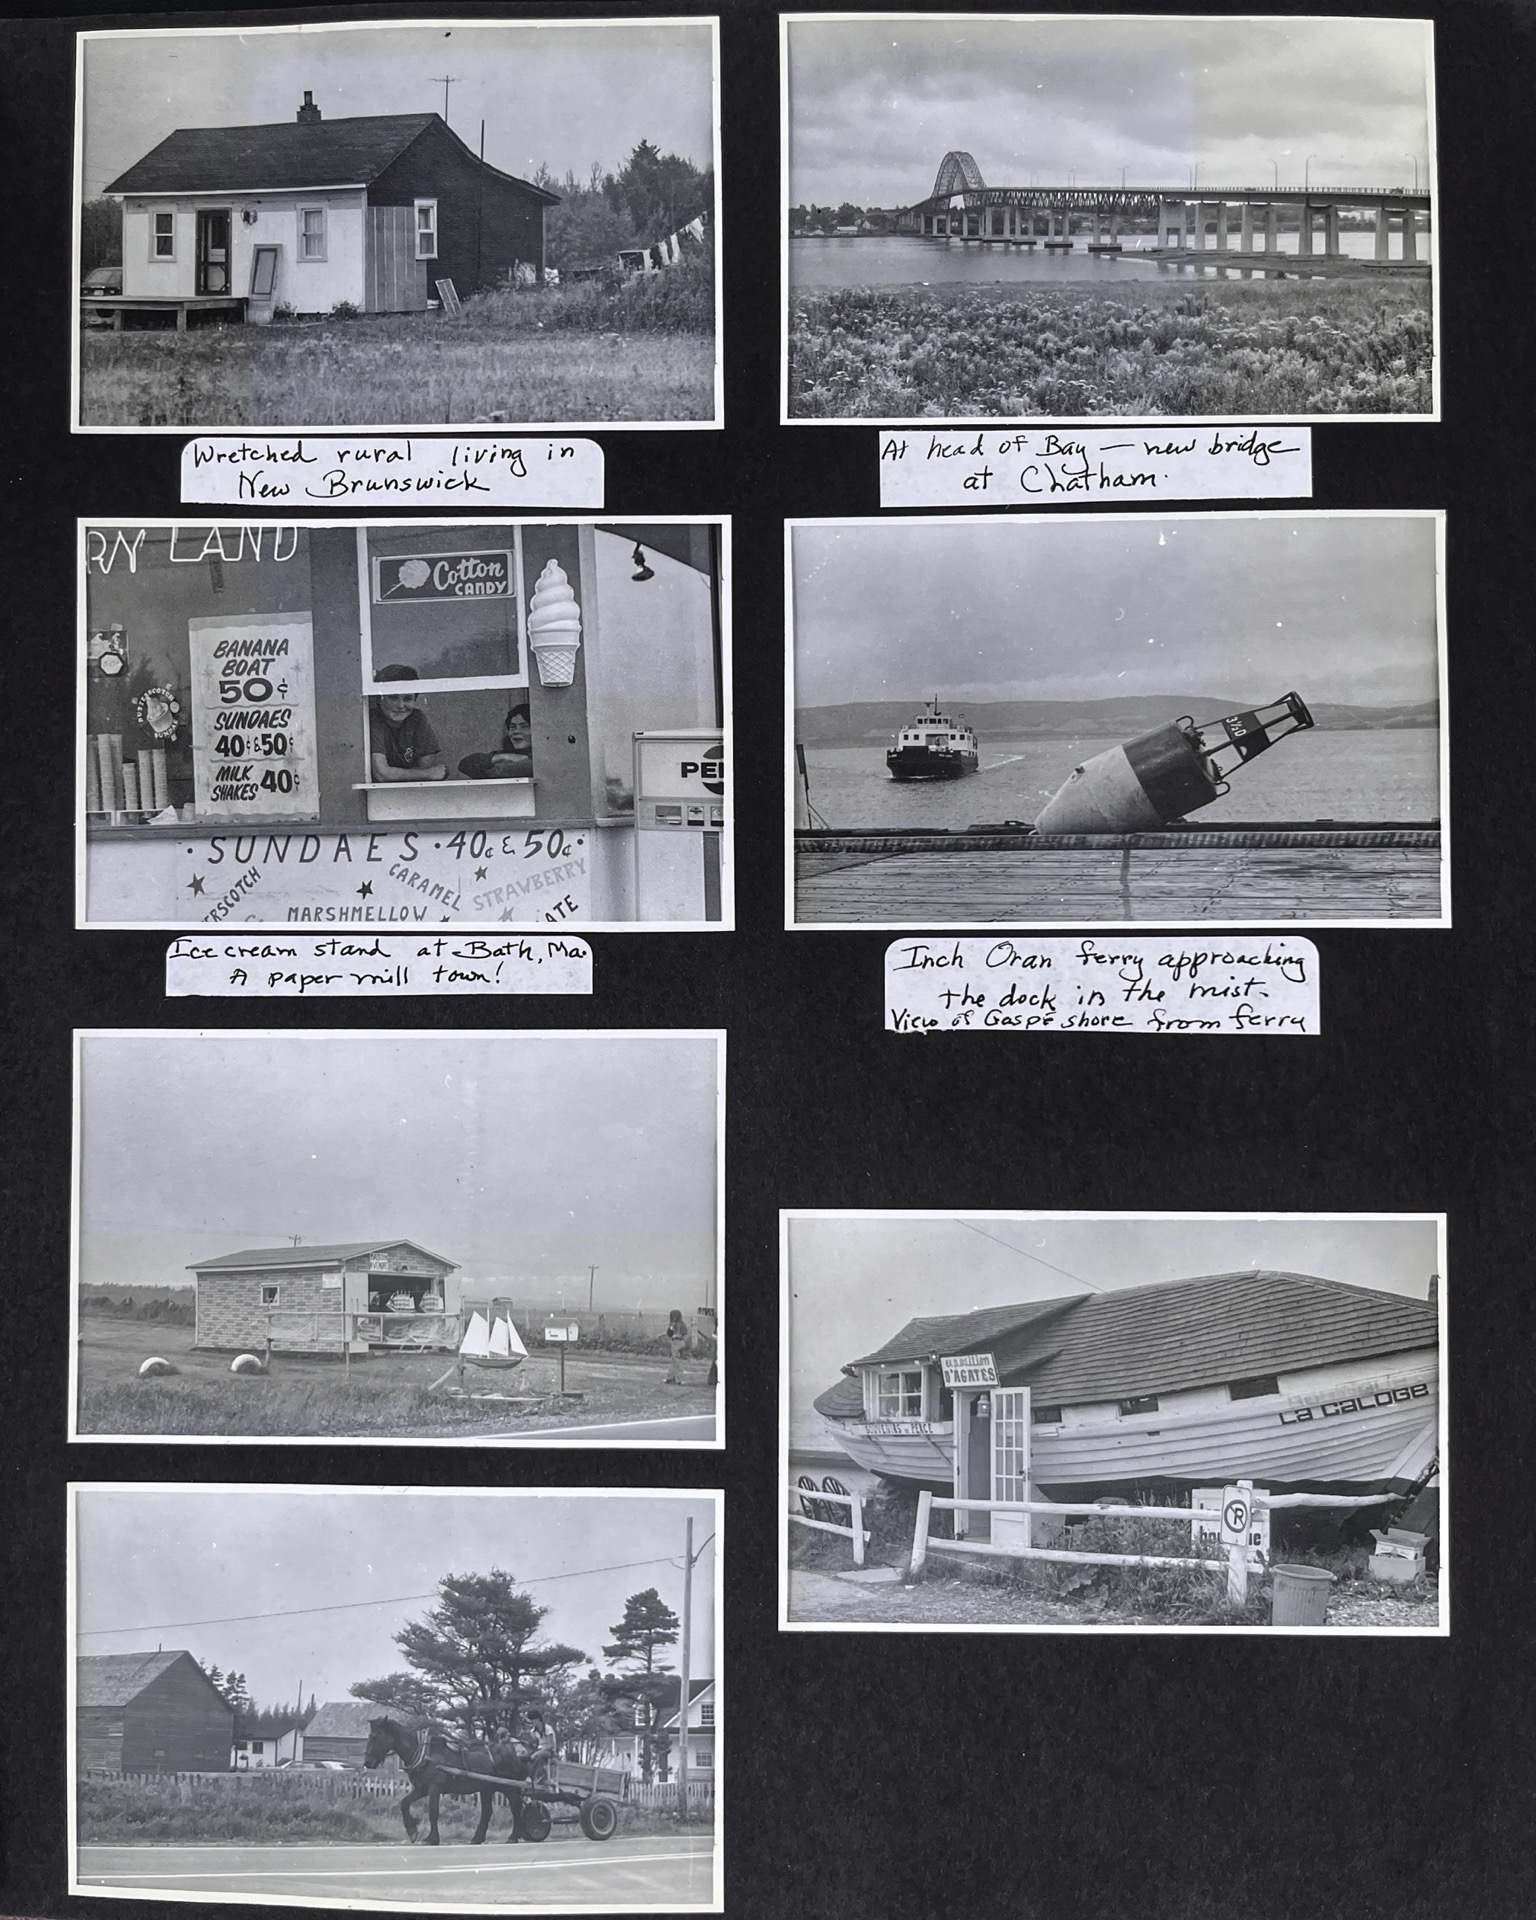 Wretched rural living in
New Brunswick
At head of Bay — new bridge
at Chatham.
RN LAND
Cotton
CANDY
BANANA
BOAT
50¢
SUNDAES
40¢&50¢
MILK
SHAKES 40¢
BUTTERSCOTCH
SUNDAE
PE
·SUNDAES·40¢ & 50¢·
ERSCOTCH
CARAMEL
STRAWBERRY
MARSHMELLOW
ATE
3½D
Ice cream stand at Bath, Ma.
A paper mill town!
Inch Oran ferry approaching
the dock in the mist.
View of Gaspé shore from ferry
D'AGATES
SOUVENIRS DE PERCE
La CaLOGE
P